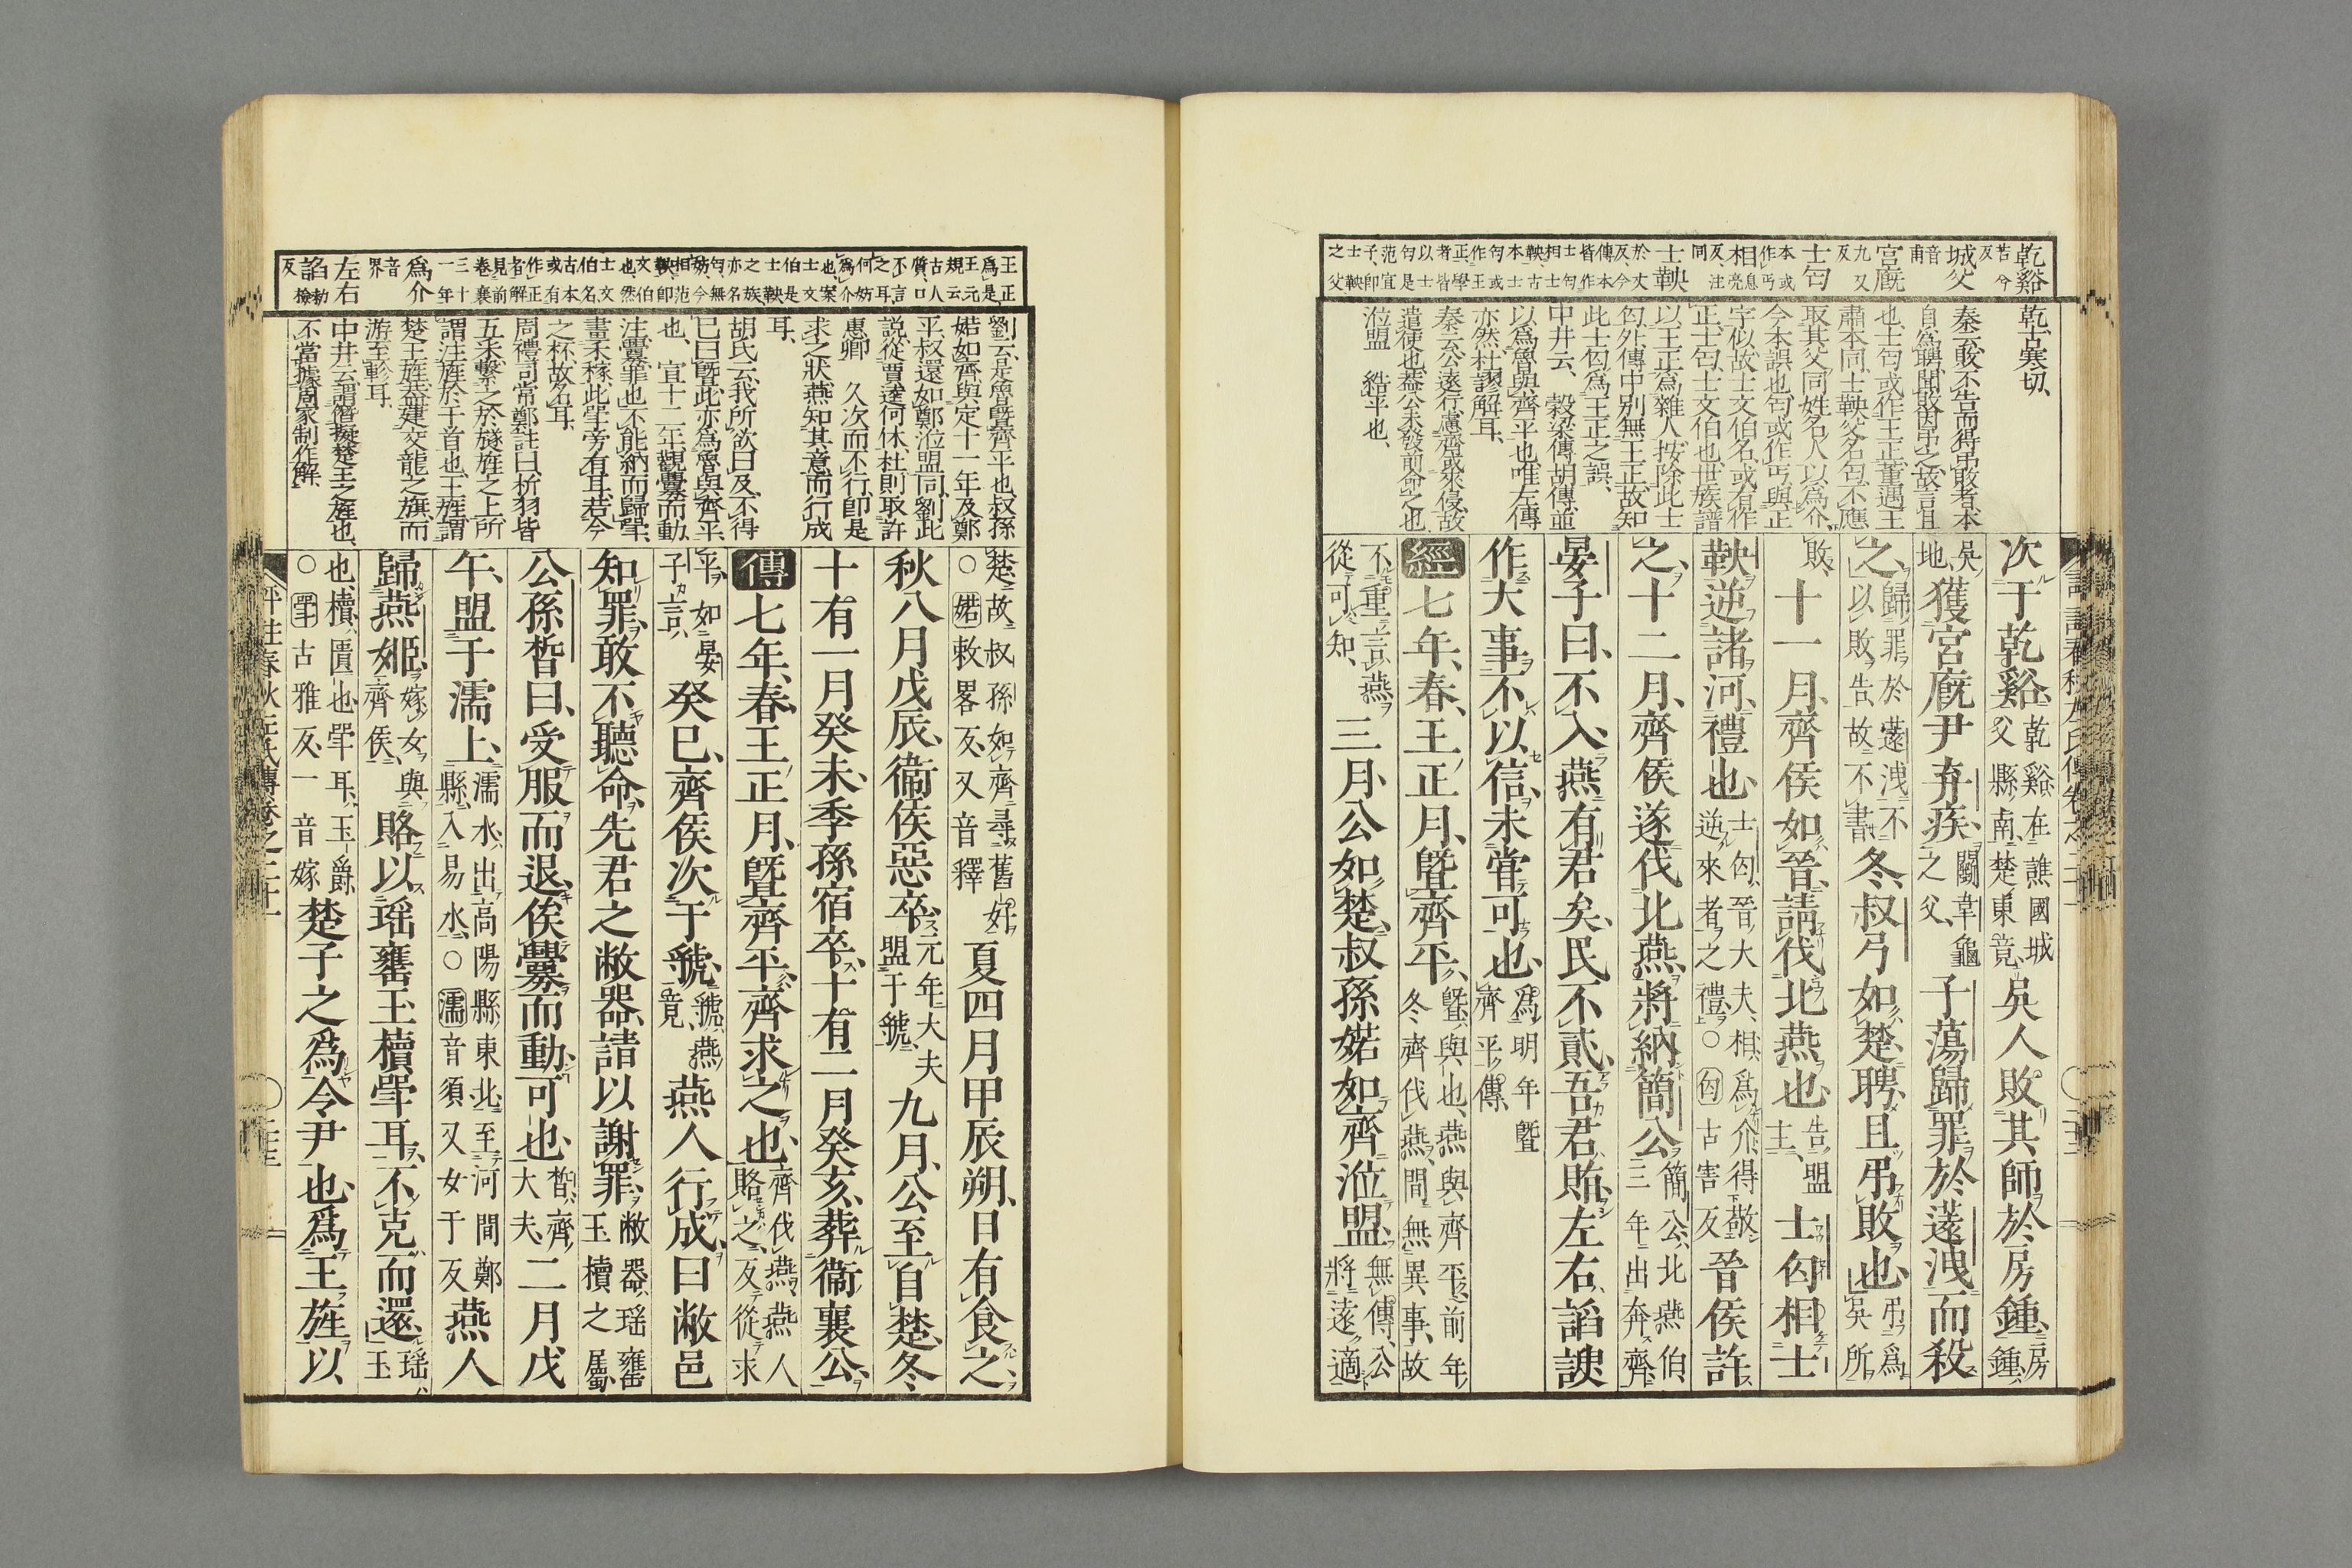 次于乾谿乾谿在譙國城父縣南楚東竟吳人敗其師於房鍾房鍾
吳地獲宮廐尹弃疾鬭韋龜之父子蕩歸罪於薳洩而殺
之歸罪於薳洩不以敗告故不書冬叔弓如楚聘且弔敗也弔爲吳所
敗十一月齊侯如晉請伐北燕也告盟主士匄相士
鞅逆諸河禮也士匄晉大夫相爲介得敬逆來者之禮○匄古害反晉侯許
之十二月齊侯遂伐北燕將納簡公簡公北燕伯三年出奔齊
晏子曰不入燕有君矣民不貳吾君賄左右諂諛
作大事不以信未嘗可也爲明年曁齊平傳
經七年春王正月曁齊平曁與也燕與齊平前年冬齊伐燕間無異事故
不重言燕從可知三月公如楚叔孫婼如齊涖盟無傳公將遠適
楚故叔孫如齊尋舊好○婼敕畧反又音釋夏四月甲辰朔日有食之
秋八月戊辰衞侯惡卒元年大夫盟于虢九月公至自楚冬
十有一月癸未季孫宿卒十有二月癸亥葬衞襄公
傳七年春王正月曁齊平齊求之也齊伐燕燕人賂之反從求
平如晏子言癸巳齊侯次于虢虢燕竟燕人行成曰敝邑
知罪敢不聽命先君之敝器請以謝罪敝器瑤罋玉櫝之屬
公孫晳曰受服而退俟釁而動可也晳齊大夫二月戊
午盟于濡上濡水出高陽縣東北至河間鄚縣入易水○濡音須又女于反燕人
歸燕姬嫁女與齊侯賂以瑤罋玉櫝斝耳不克而還瑤玉
也櫝匱也斝耳玉爵○斝古雅反一音嫁楚子之爲令尹也爲王旌以
乾谿苦兮反
城父音甫
宮廐九又反
士匄本或作丐
相息亮反注同
士鞅
乾古寒切
秦云敗不告而得弔敗者本
自爲聘聞敗因弔之故言且
也士匄或作王正董遇王
肅本同士鞅父名匄不應
取其父同姓名人以爲介
今本誤也匄或作丐與正
字似故士文伯名或有作
正士匄士文伯也世族譜
以王正爲雜人按除此士
匄外傳中別無王正故知
此士匄爲王正之誤
中井云穀梁傳胡傳並
以爲魯與齊平也唯左傳
亦然杜謬解耳
秦云公遠行慮齊或來侵故
遣使也葢公未發前命之也
涖盟結平也
劉云是魯曁齊平也叔孫
婼如齊與定十一年及鄭
平叔還如鄭涖盟同劉此
說從賈逵何休杜則取許
惠卿久次而不行卽是
求之狀燕知其意而行成
耳
胡氏云我所欲曰及不得
已曰曁此亦爲魯與齊平
也宣十二年觀釁而動
注釁罪也不能納而歸斝
畫禾稼此斝旁有耳若今
之杯故名耳
周禮司常鄭註曰析羽皆
五采繫之於旞旌之上所
謂注旌於干首也王旌謂
楚王旌葢建交龍之旗而
游至軫耳
中井云謂僭擬楚王之旌也
不當據周家制作解
爲介音界
左右
諂勑檢反